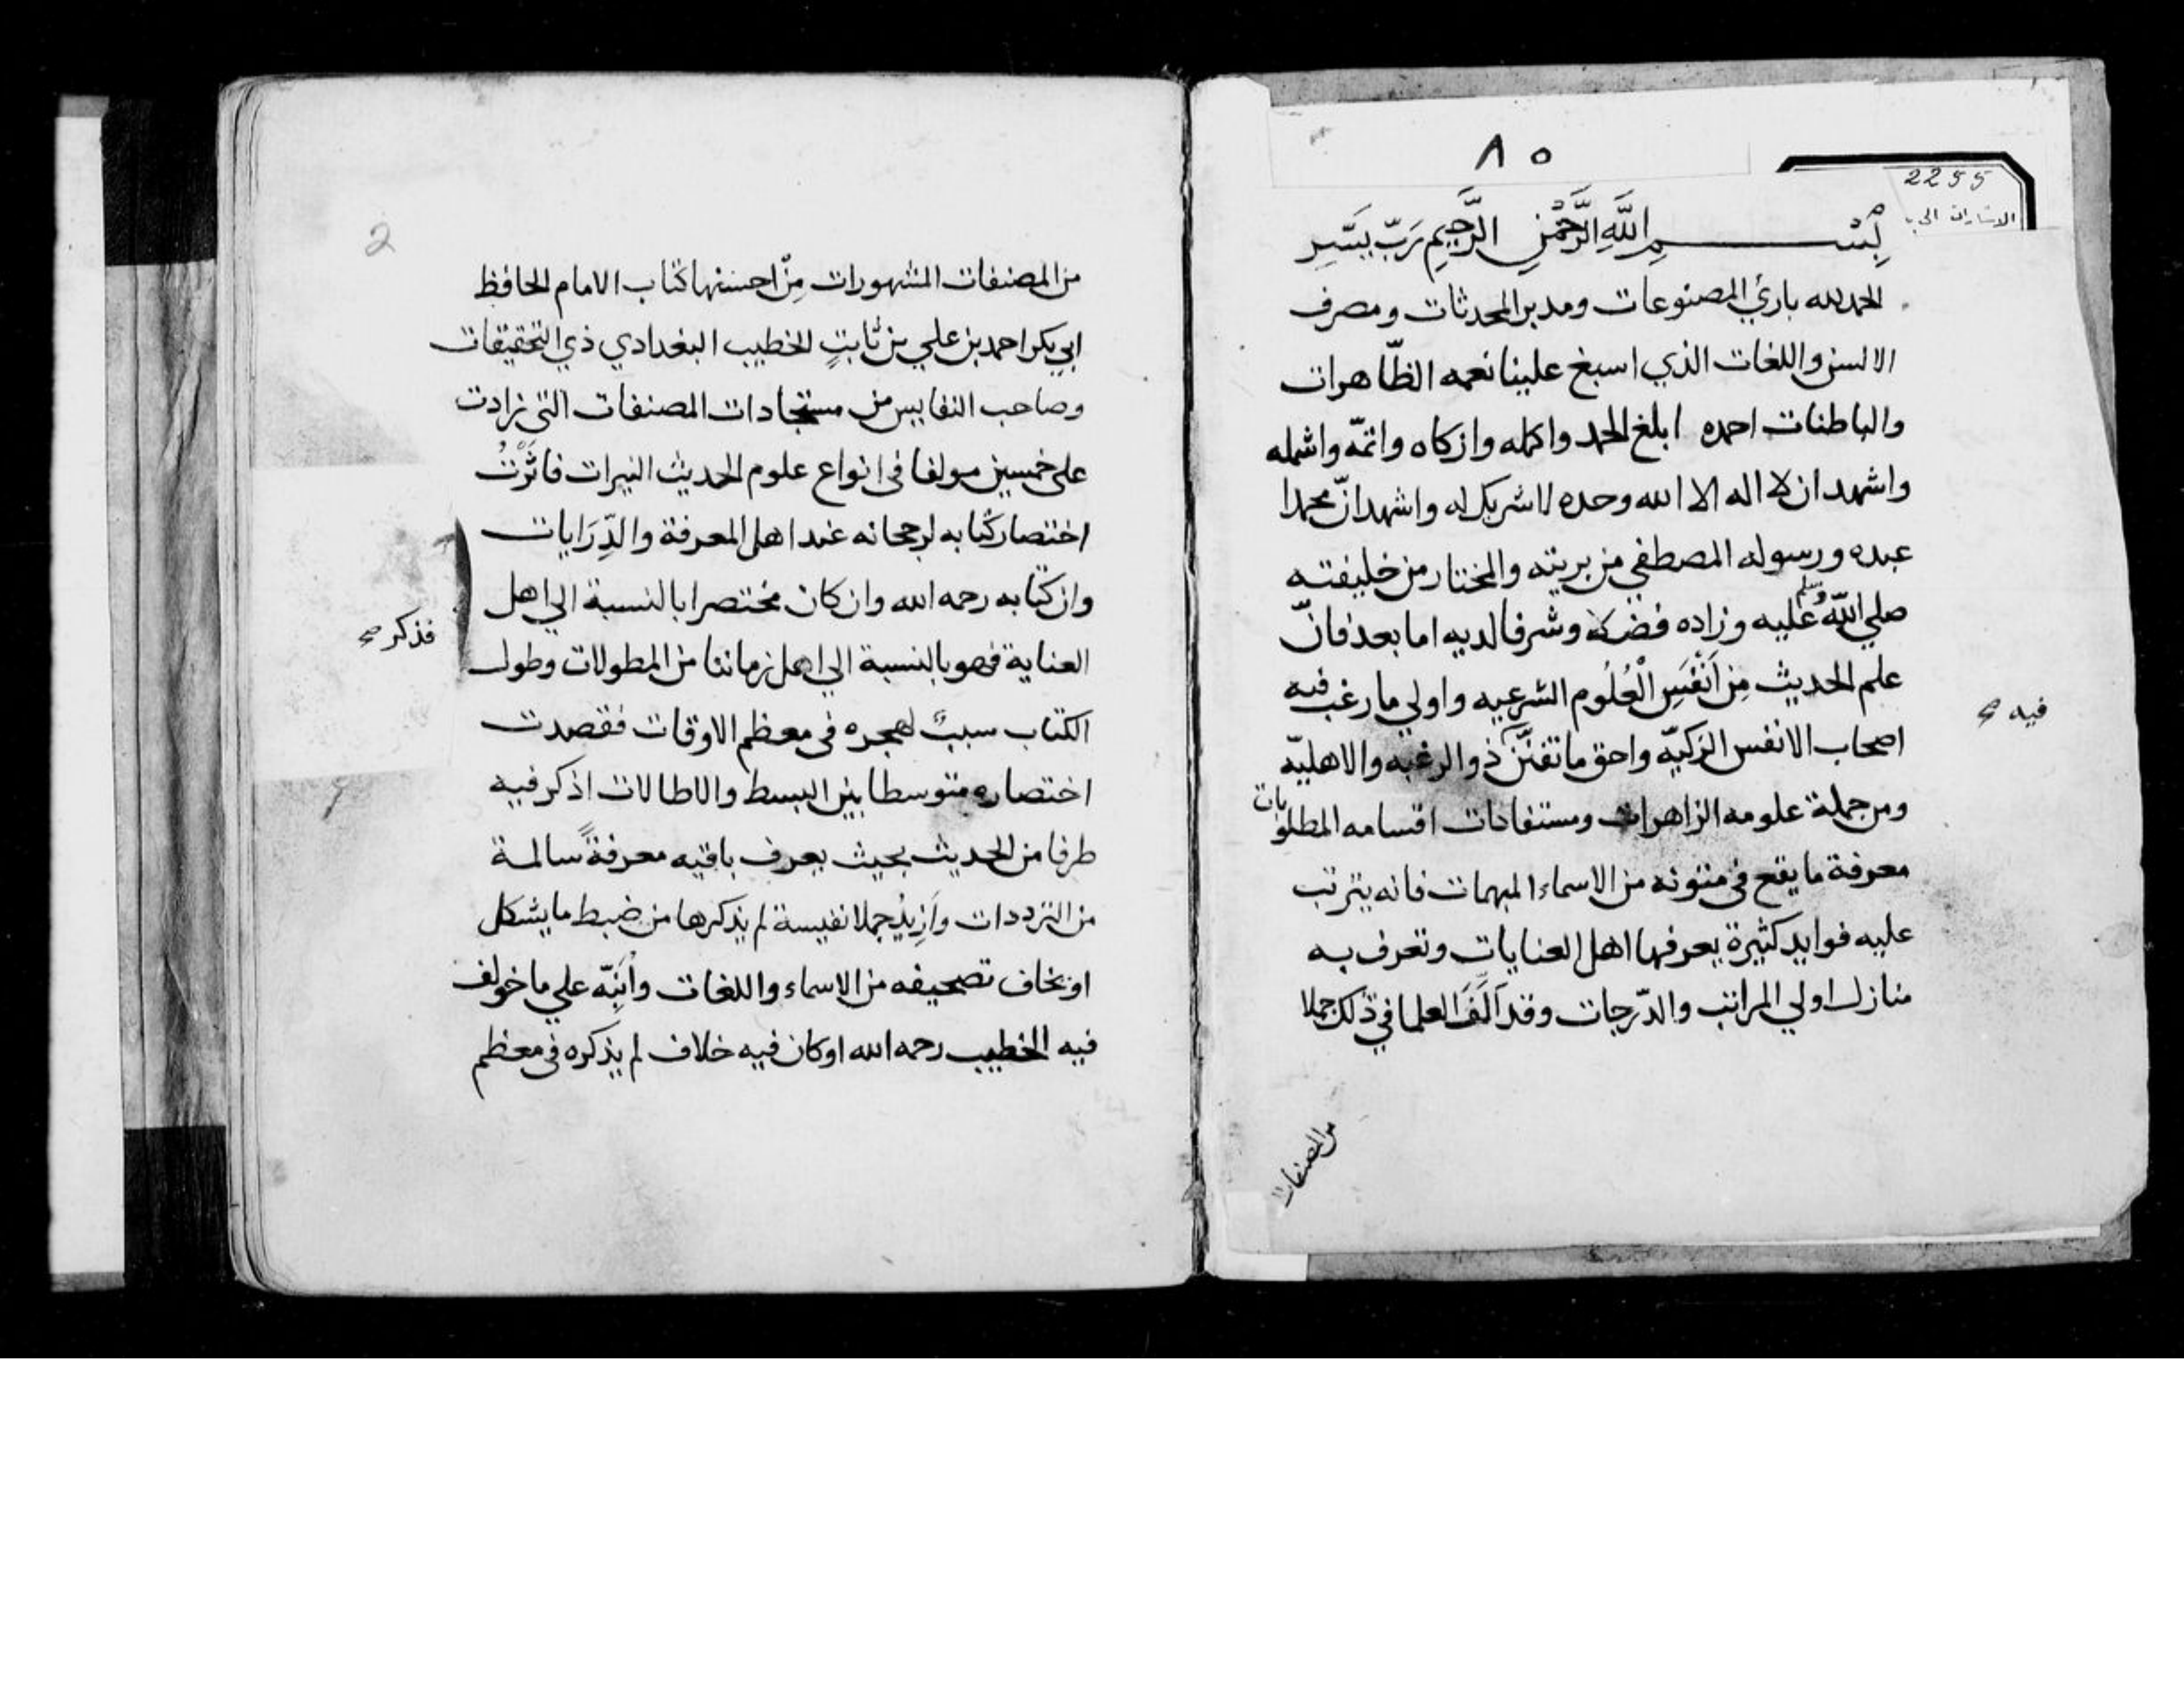 ٨٥
2255
الاشارات الى
بسم الله الرحمن الرحيم رب يسر
الحمد لله بارئ المصنوعات ومدبر المحدثات ومصرف
الالسن واللغات الذي اسبغ علينا نعمه الظّاهرات
والباطنات احمده ابلغ الحمد واكمله وازكاه واتمّه واشمله
واشهد ان لا اله الا الله وحده لا شريك له واشهد انّ محمدا
عبده ورسوله المصطفي من بريته والمختار من خليفته
صلي الله عليه وسلم وزاده فضلا وشرفا لديه اما بعد فانّ
علم الحديث مِن اَنْفَسِ الْعُلُوم الشرعيه واولي ما رغب فيه
فيه صح
اصحاب الانفس الزكيّه واحق ما تفنّن ذو الرغبه والاهليّه
ومن جملة علومه الزاهرات ومستفادات اقسامه المطلوبات
معرفة ما يقع فى متونه من الاسماء المبهمات فانه يترتب
عليه فوايد كثيرة يعرفها اهل العنايات وتعرف به
منازل اولي المراتب والدّرجات وقد اَلَّفَ العلما في ذلك جملا
من المصنفات
2
من المصنفات المشهورات مِنْ احسنها كتاب الامام الحافظ
ابي بكر احمد بن علي بن ثابتٍ الخطيب البغدادي ذي التحقيقات
وصاحب النفايس من مستجادات المصنفات التى زادت
على خمسين مولفا فى انواع علوم الحديث النيرات فاثَرْتُ
اختصار كتابه لرجحانه عند اهل المعرفة والدِّرَايات
وان كتابه رحمه الله وان كان مختصرا بالنسبة الي اهل
فذكر صح
العناية فهو بالنسبة الي اهل زماننا من المطولات وطول
الكتاب سببٌ لهجره فى معظم الاوقات فقصدت
اختصاره متوسطا بين البسط والاطالات اذكر فيه
طرفا من الحديث بحيث يعرف باقيه معرفةً سالمة
من الترددات وَاَزِيْدُ جملا نفيسة لم يذكرها من ضبط ما يشكل
او يخاف تصحيفه من الاسماء واللغات واُنَبِّه علي ما خولف
فيه الخطيب رحمه الله او كان فيه خلاف لم يذكره فى معظم